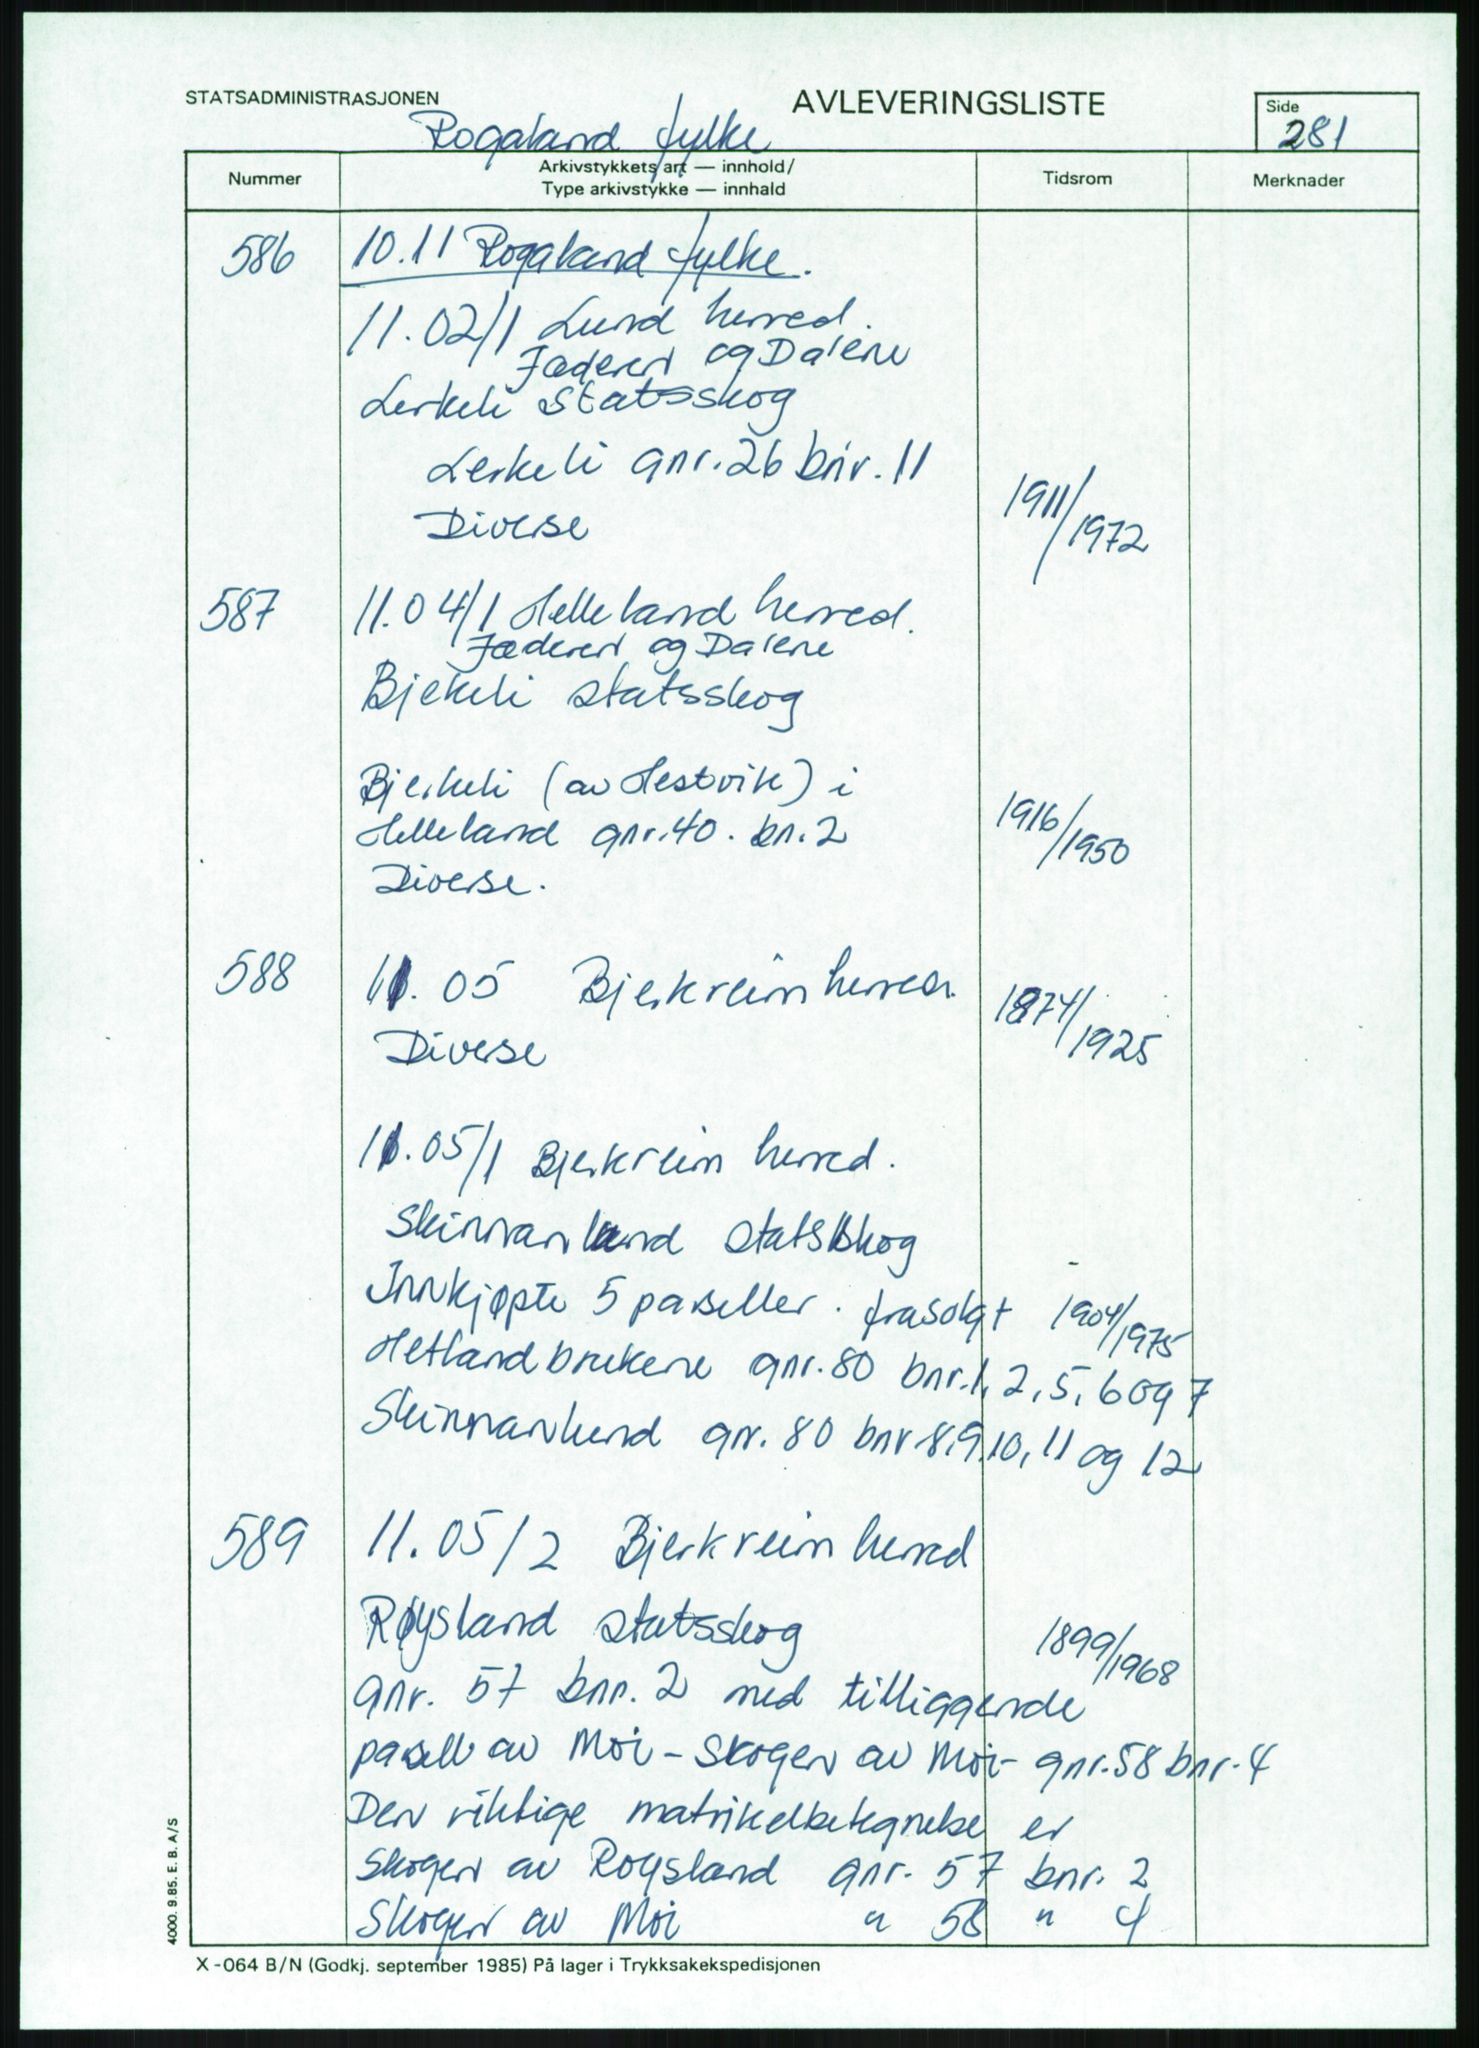 STATSADMINISTRASJONEN
AVLEVERINGSLISTE
Side
281
Rogaland fylke
Nummer
Arkivstykkets art — innhold/
Type arkivstykke — innhald
Tidsrom
Merknader
586 10.11 Rogaland fylke.
11.02/1 Lund herred.
Jæderen og Dalene
Lerkeli Statsskog
Lerkeli gnr. 26 bnr. 11
Diverse 1911/1972
587 11.04/1 Helleland herred.
Jæderen og Dalene
Bjekeli statsskog
Bjerkeli (av Hestvik) i
Helleland gnr. 40. bn. 2 1916/1950
Diverse.
588 11.05 Bjerkreim herred. 1874/1925
Diverse
11.05/1 Bjerkreim herred.
Skinnanland statsskog
Innkjøpte 5 parseller. frasolgt 1904/1975
Hetlandbrukene gnr. 80 bnr. 1, 2, 5, 6 og 7
Skinnanlund gnr. 80 bnr. 8, 9, 10, 11 og 12
589 11.05/2 Bjerkreim herred
Røysland statsskog 1899/1968
gnr. 57 bnr. 2 med tilliggende
parsell av Moi - Skogen av Moi - gnr. 58 bnr. 4
Den riktige matrikelbetegnelse er
Skogen av Røysland gnr. 57 bnr. 2
Skogen av Moi " 58 " 4
4000. 9.85. E. B. A/S
X-064 B/N (Godkj. september 1985) På lager i Trykksakekspedisjonen